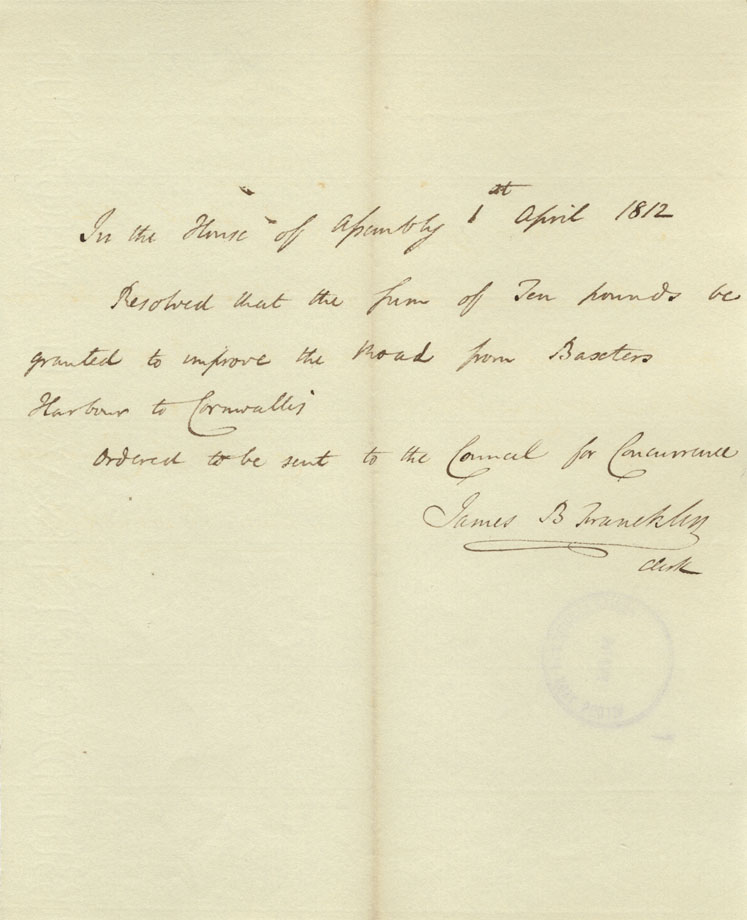 In the House of Assembly 1st April 1812
Resolved that the sum of Ten pounds be
granted to improve the Road from Baxters
Harbour to Cornwallis
Ordered to be sent to the Council for Concurrence
James B Francklin
Clerk